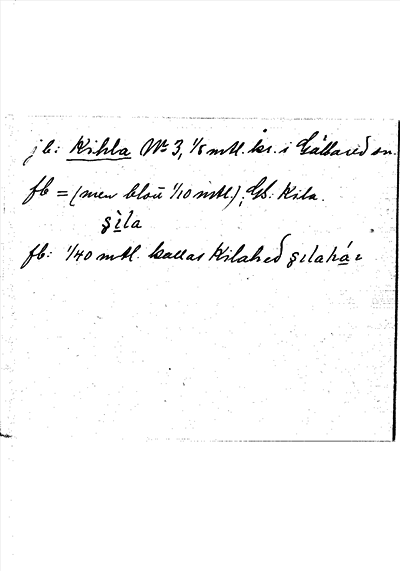 jb: Kihla Nr 3, 1/8 mtl. kr. i Gällared sn.
fb = (men blott 1/10 mtl.); GS. Kila.
şìla
fb: 1/40 mtl. kallas Kilahed